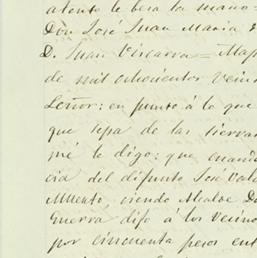 atento le besa la mano=
Don José Juan Maria
D. Juan Viscarra= May
de mil ochocientos vein
Señor: en punto á lo que
que sepa de las tierras
me le digo: que cuand
cia del difunto José Val
siendo Alcalde Do
Guerra, dijo á los vecino
por cincuenta pesos ent